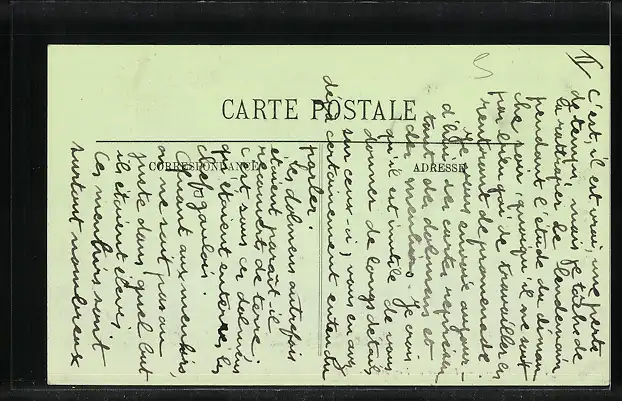 CARTE POSTALE
CORRESPONDANCE
ADRESSE
IV
C'est, il est vrai, une perte
de temps, mais je tâche de
la rattraper le lendemain
pendant l'étude du diman
che soir, quoiqu'il me soit
pas bien gai de travailler en
rentrant de promenade.
Je vous envoie aujour-
d'hui des cartes représen
tant des dolmens et
des menhirs. Je crois
qu'il est inutile de vous
donner de longs détails
sur ceux-ci, vous en avez
déjà certainement entendu
parler.
Les dolmens autrefois
étaient paraît-il
recouverts de terre;
c'est sous ces dolmens
qu'étaient enterrés les
chefs gaulois.
Quant aux menhirs
on ne sait pas au
juste dans quel but
ils étaient élevés,
Ces menhirs sont
surtout nombreux